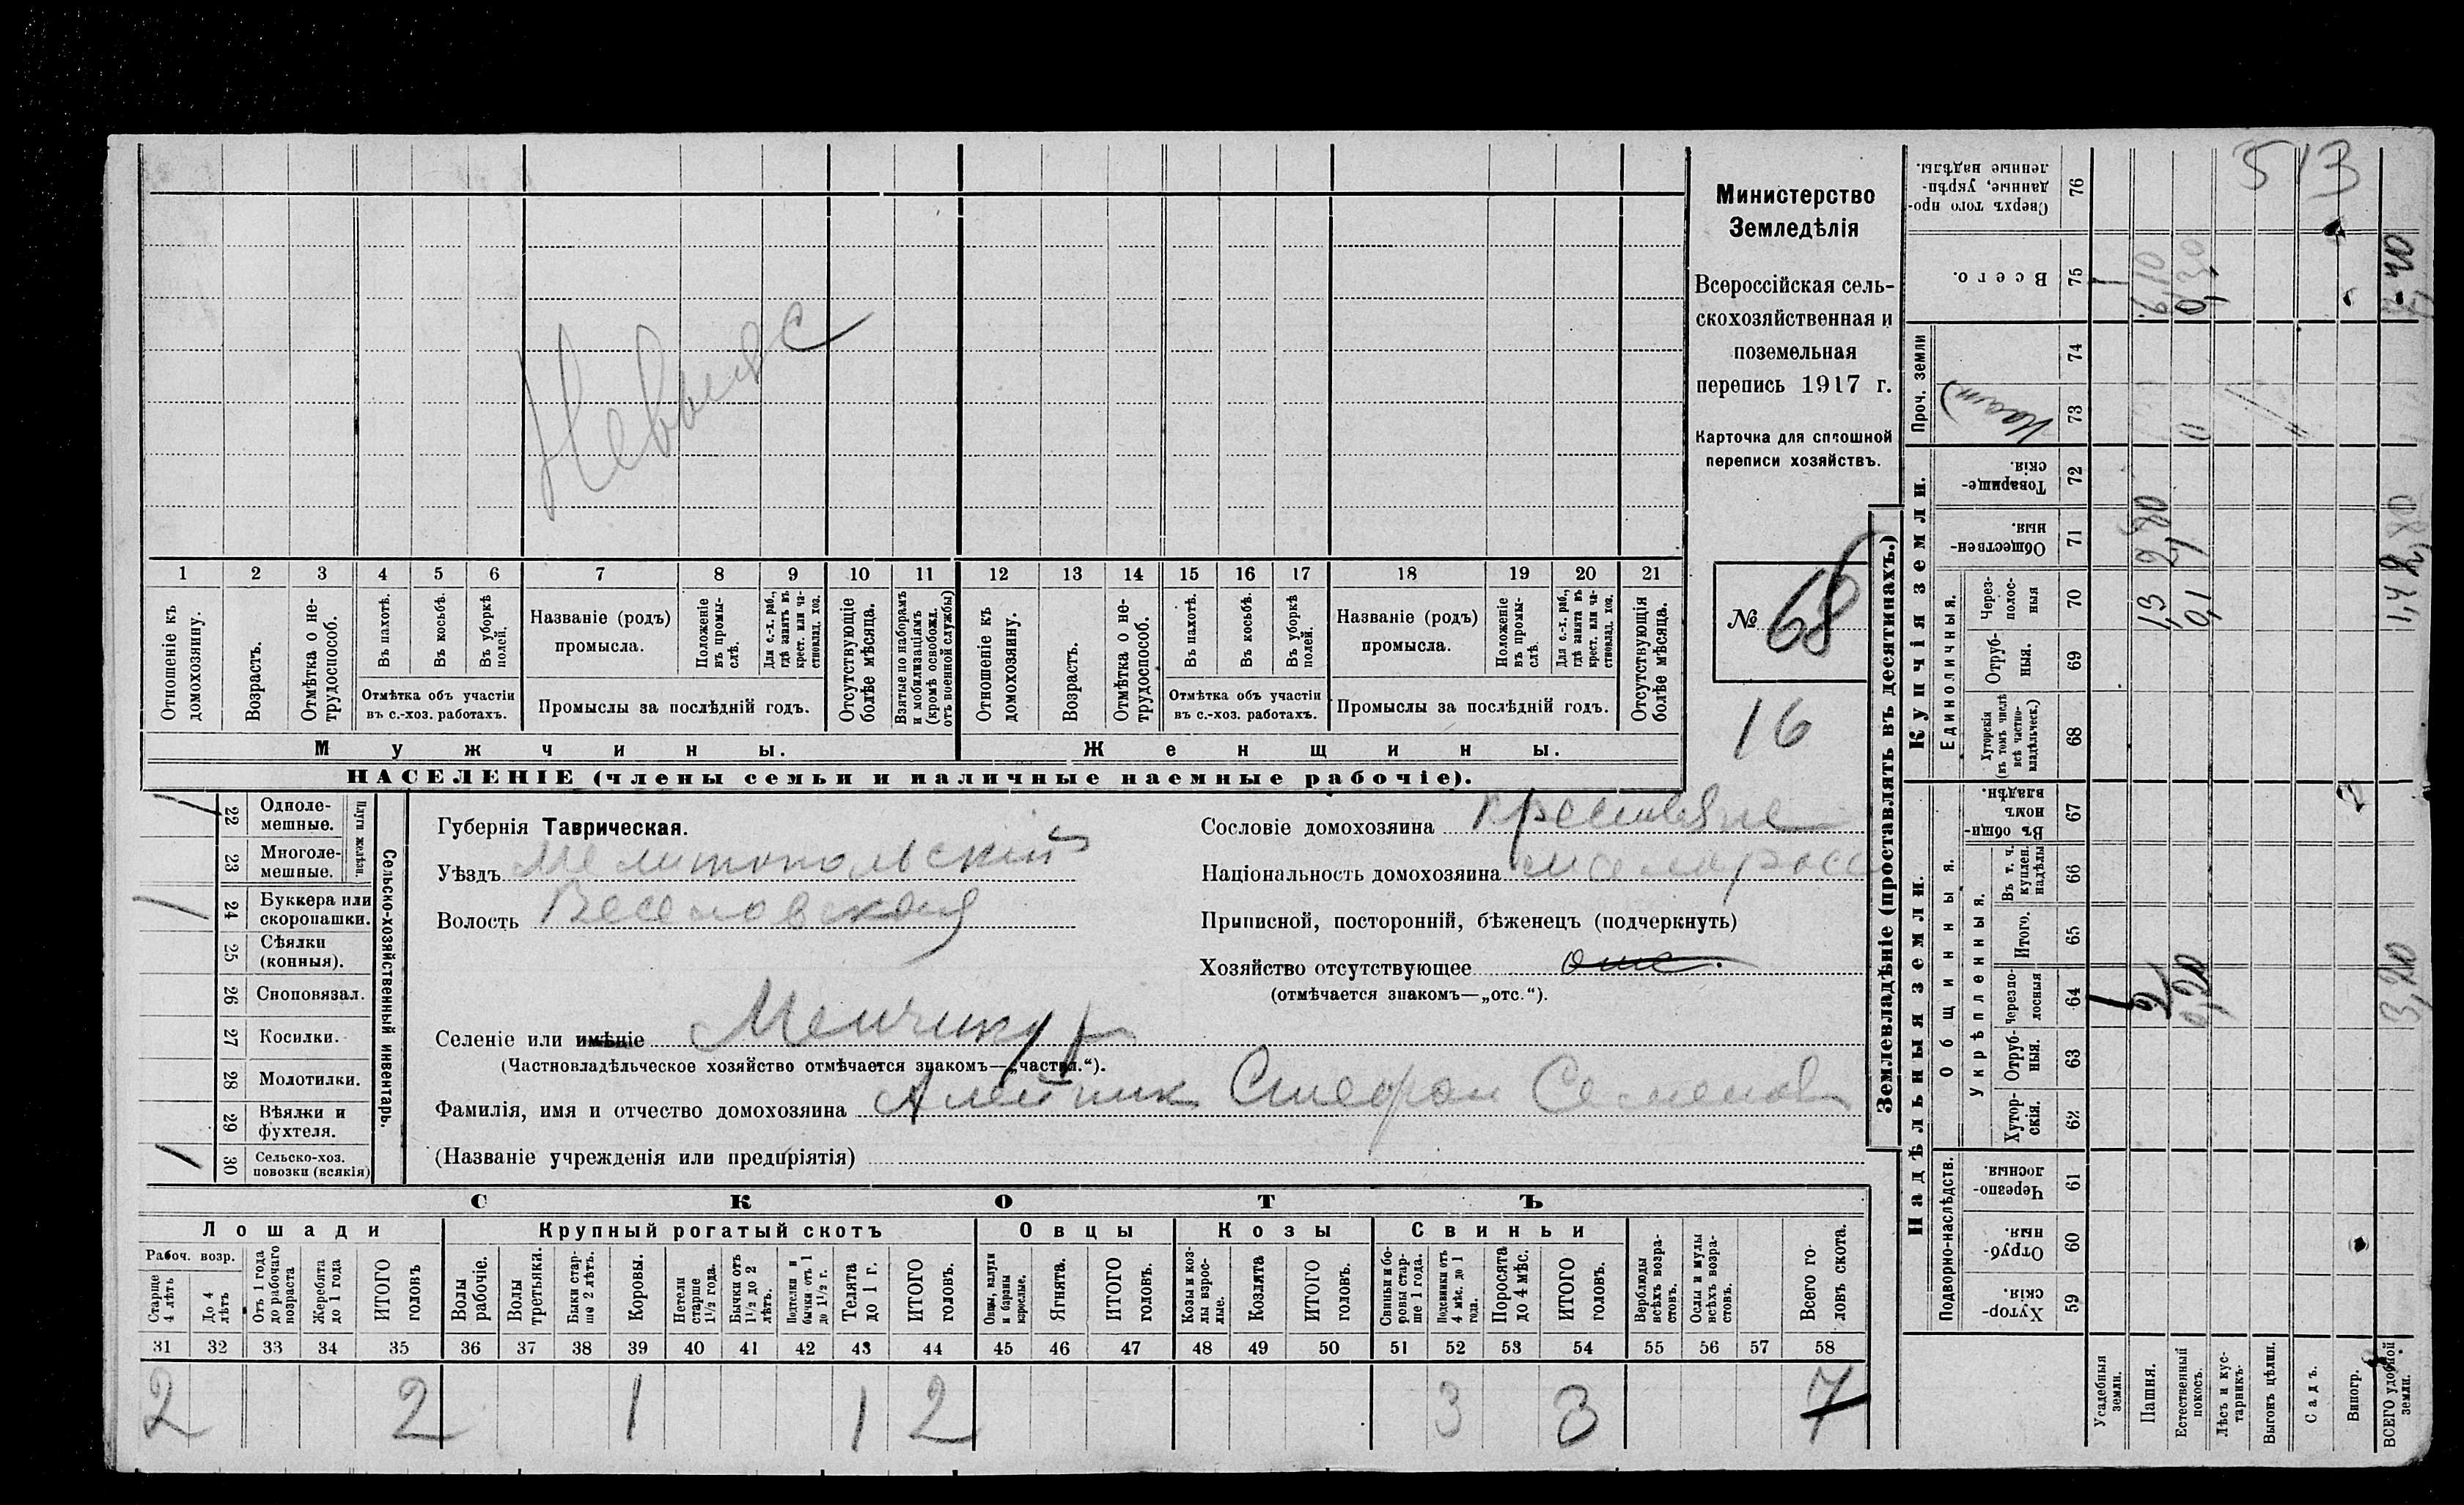 513
Министерство
Земледѣлія
Всероссійская сель-
скохозяйственная и
поземельная
перепись 1917 г.
Карточка для сплошной
переписи хозяйствъ.
№ 68
16
1 2 3 4 5 6 7 8 9 10 11 12 13 14 15 16 17 18 19 20 21
Отношеніе къ домохозяину.
Возрастъ.
Отмѣтка о не-трудоспособ.
Въ пахотѣ.
Въ косьбѣ.
Въ уборкѣ полей.
Отмѣтка объ участіи
въ с.-хоз. работахъ.
Названіе (родъ)
промысла.
Положеніе въ промы-слѣ.
Для с.-х. раб., гдѣ занятъ въ крест. или ча-стновлад. хоз.
Промыслы за послѣдній годъ.
Отсутствующіе болѣе мѣсяца.
Взятые по наборамъ и мобилизаціямъ (кромѣ освобожд. отъ военной службы)
Отношеніе къ домохозяину.
Возрастъ.
Отмѣтка о не-трудоспособ.
Въ пахотѣ.
Въ косьбѣ.
Въ уборкѣ полей.
Отмѣтка объ участіи
въ с.-хоз. работахъ.
Названіе (родъ)
промысла.
Положеніе въ промы-слѣ.
Для с.-х. раб., гдѣ занята въ крест. или ча-стновлад. хоз.
Промыслы за послѣдній годъ.
Отсутствующія болѣе мѣсяца.
Мужчины.
Женщины.
НАСЕЛЕНІЕ (члены семьи и наличные наемные рабочіе).
Сельско-хозяйственный инвентарь.
Плуги желѣзн.
22 Одноле-мешные. 1
23 Многоле-мешные.
24 Буккера или скоропашки. 1
25 Сѣялки (конныя).
26 Сноповязал.
27 Косилки.
28 Молотилки.
29 Вѣялки и фухтеля.
30 Сельско-хоз. повозки (всякія) 1
Губернія Таврическая.
Уѣздъ Мелитопольскій
Волость Веселовская
Селеніе или имѣніе Менчикур
(Частновладѣльческое хозяйство отмѣчается знакомъ—„частвл.“).
Фамилія, имя и отчество домохозяина Алейник Стефан Семенов
(Названіе учрежденія или предпріятія)
Сословіе домохозяина
Національность домохозяина малоросс
Приписной, посторонній, бѣженецъ (подчеркнуть)
Хозяйство отсутствующее отс.
(отмѣчается знакомъ—„отс.“).
СКОТЪ
Лошади
Крупный рогатый скотъ
Овцы
Козы
Свиньи
Рабоч. возр.
Старше 4 лѣтъ
До 4 лѣтъ
Отъ 1 года до рабочаго возраста
Жеребята до 1 года
ИТОГО головъ
Волы рабочіе.
Волы третьяки.
Быки стар-ше 2 лѣтъ.
Коровы.
Нетели старше 1½ года.
Бычки отъ 1½ до 2 лѣтъ.
Подтелки и бычки отъ 1 до 1½ г.
Телята до 1 г.
ИТОГО головъ.
Овцы, валухи и бараны взрослые.
Ягнята.
ИТОГО головъ.
Козы и коз-лы взрос-лые.
Козлята
ИТОГО головъ.
Свиньи и бо-ровы стар-ше 1 года.
Подсвинки отъ 4 мѣс. до 1 года.
Поросята до 4 мѣс.
ИТОГО головъ.
Верблюды всѣхъ возра-стовъ.
Ослы и мулы всѣхъ возра-стовъ.
Всего го-ловъ скота.
31 32 33 34 35 36 37 38 39 40 41 42 43 44 45 46 47 48 49 50 51 52 53 54 55 56 57 58
2 2 1 1 2 3 3 7
Землевладѣніе (проставлять въ десятинахъ.)
Купчія земли.
Надѣльныя земли.
Проч. земли
Единоличныя.
Общинныя.
Укрѣпленныя.
Подворно-наслѣдств.
Сверхъ того про-данные, укрѣп-ленные надѣлы. 76
Всего. 75
74
73
Товарище-скія. 72
Обществен-ныя. 71
Черес-полос-ныя 70
Отруб-ныя. 69
Хуторскія (въ томъ числѣ всѣ частно-владѣльческ.) 68
Въ общин-номъ владѣн. 67
Въ т. ч. куплен. надѣлы 66
Итого. 65
Черезпо-лосныя 64
Отруб-ныя. 63
Хутор-скія. 62
Черезпо-лосныя. 61
Отруб-ныя. 60
Хутор-скія. 59
Усадебныя земли.
Пашня.
Естественный покосъ.
Лѣсъ и кус-тарникъ.
Выгонъ цѣлин.
Садъ.
Виногр.
ВСЕГО удобной земли.
6,10
2,80
1,3
0,1
1,4
2,80
3,20